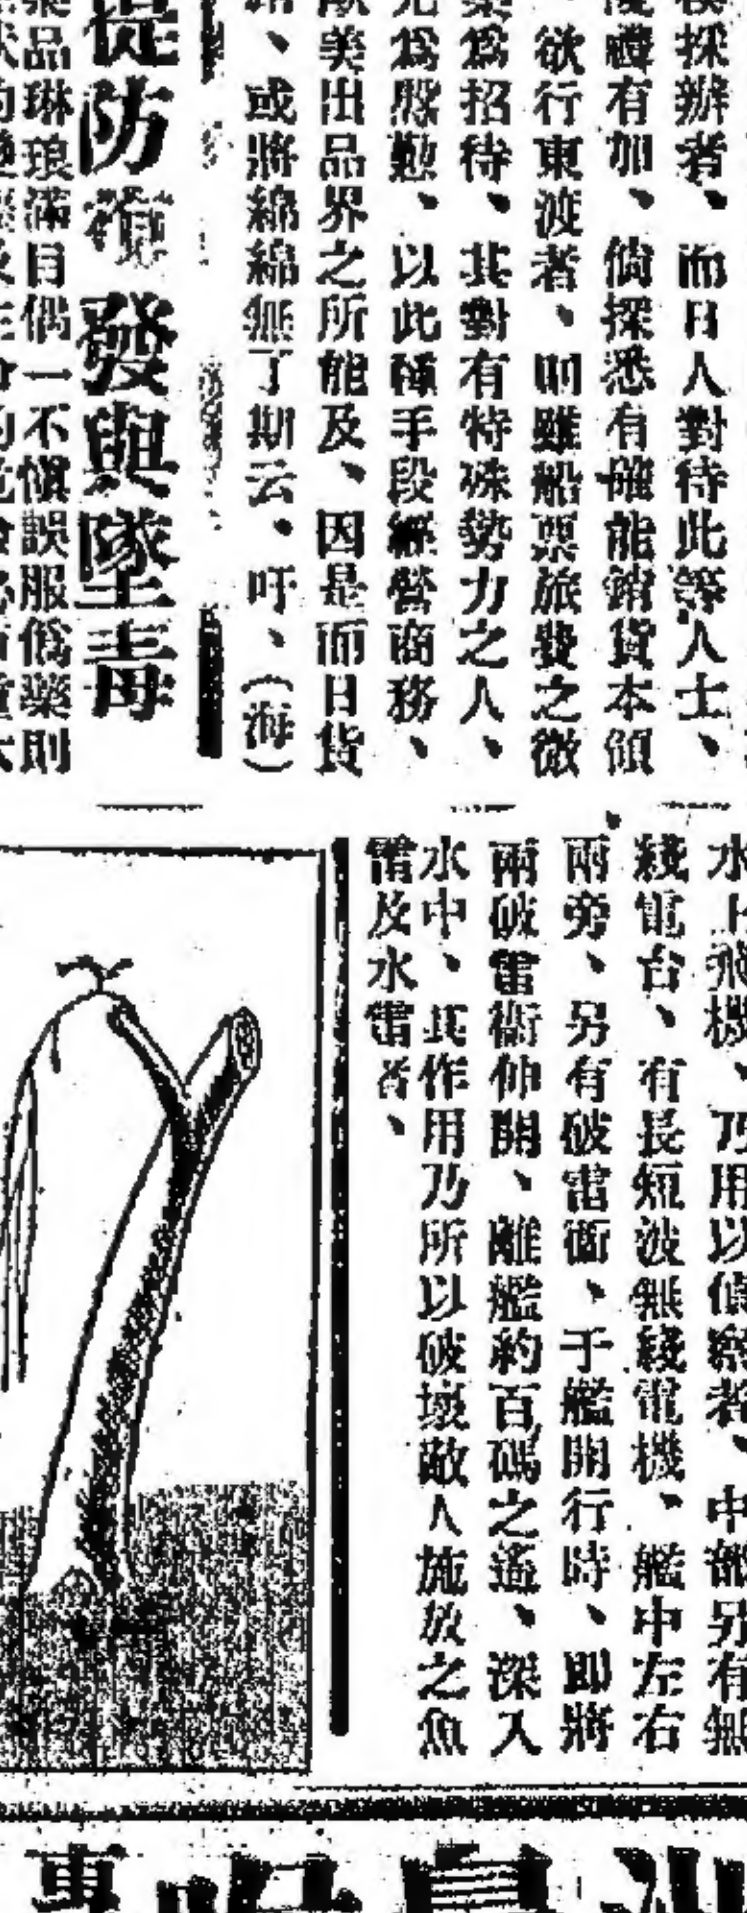 採辦者、而日人對待此等人士、
禮有加、倘探悉有確能銷貨本領
、欲行東渡者、則雖船票旅費之微
爲招待、其對有特殊勢力之人、
爲慇懃、以此種手段經營商務、
歐美出品界之所能及、因是而日貨
、或將綿綿無了期云、吁、(海)
提防 發與墜毒
藥品琳琅滿目偶一不愼誤服僞藥則
水上飛機、乃用以偵察者、中部另有無
綫電台、有長短波無綫電機、艦中左右
兩旁、另有破雷衛、于艦開行時、即將
兩破雷衛伸開、離艦約百碼之遙、深入
水中、其作用乃所以破壞敵人施放之魚
雷及水雷者、